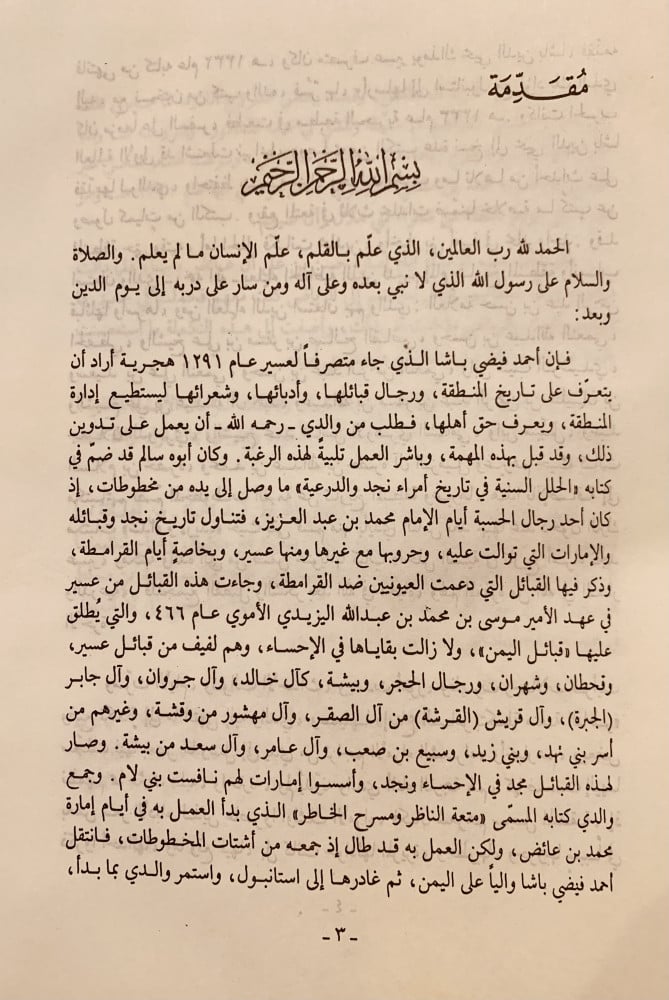 مُقَدِّمَة
بِسْمِ اللهِ الرَّحْمٰنِ الرَّحِيْمِ
الحمد لله رب العالمين، الذي علّم بالقلم، علّم الإنسان ما لم يعلم. والصلاة
والسلام على رسول الله الذي لا نبي بعده وعلى آله ومن سار على دربه إلى يوم الدين
وبعد:
فإن أحمد فيضي باشا الذي جاء متصرفاً لعسير عام ١٢٩١ هجرية أراد أن
يتعرّف على تاريخ المنطقة، ورجال قبائلها، وأدبائها، وشعرائها ليستطيع إدارة
المنطقة، ويعرف حق أهلها، فطلب من والدي ـ رحمه الله ـ أن يعمل على تدوين
ذلك، وقد قبل بهذه المهمة، وباشر العمل تلبيةً لهذه الرغبة. وكان أبوه سالم قد ضمّ في
كتابه «الحلل السنية في تاريخ أمراء نجد والدرعية» ما وصل إلى يده من مخطوطات، إذ
كان أحد رجال الحسبة أيام الإمام محمد بن عبد العزيز، فتناول تاريخ نجد وقبائله
والإمارات التي توالت عليه، وحروبها مع غيرها ومنها عسير، وبخاصةٍ أيام القرامطة،
وذكر فيها القبائل التي دعمت العيونيين ضد القرامطة، وجاءت هذه القبائل من عسير
في عهد الأمير موسى بن محمد بن عبدالله اليزيدي الأموي عام ٤٦٦، والتي يُطلق
عليها «قبائل اليمن»، ولا زالت بقاياها في الإحساء، وهم لفيف من قبائل عسير،
وقحطان، وشهران، ورجال الحجر، وبيشة، كآل خالد، وآل جروان، وآل جابر
(الجبرة)، وآل قريش (القرشة) من آل الصقر، وآل مهشور من وقشة، وغيرهم من
أسر بني نهد، وبني زيد، وسبيع بن صعب، وآل عامر، وآل سعد من بيشة. وصار
لهذه القبائل مجد في الإحساء ونجد، وأسسوا إمارات لهم نافست بني لام. وجمع
والدي كتابه المسمّى «متعة الناظر ومسرح الخاطر» الذي بدأ العمل به في أيام إمارة
محمد بن عائض، ولكن العمل به قد طال إذ جمعه من أشتات المخطوطات، فانتقل
أحمد فيضي باشا والياً على اليمن، ثم غادرها إلى استانبول، واستمر والدي بما بدأ،
ـ ٣ ـ